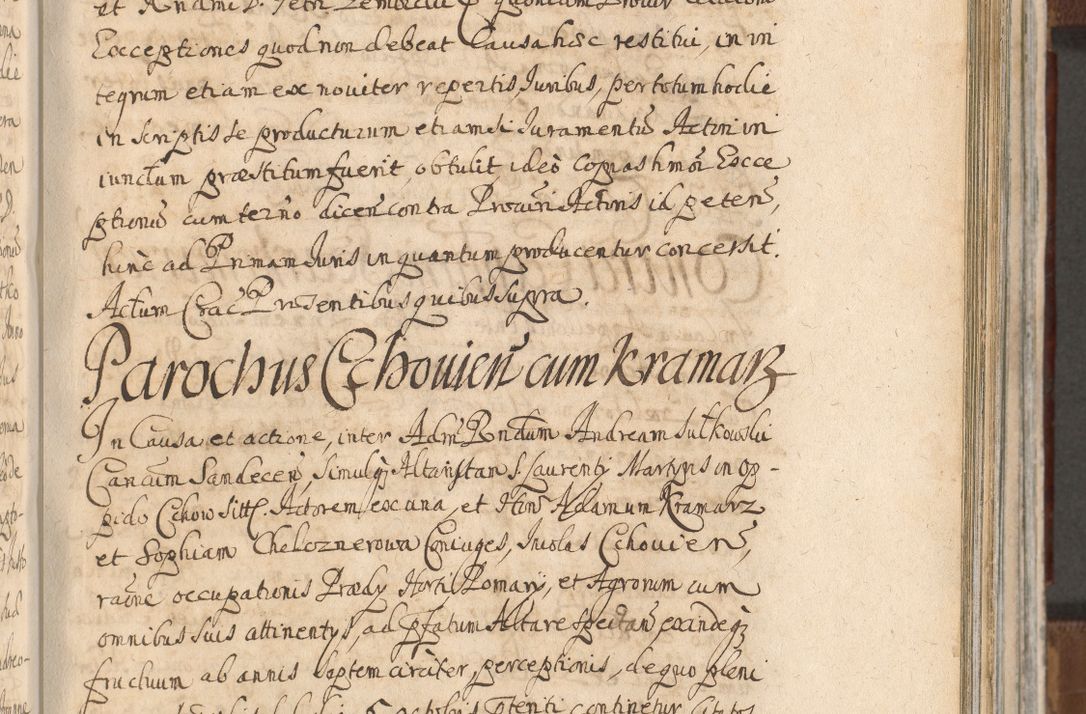 Exceptiones quod non debeat Causa hæc restitui, in in
tegrum etiam ex noviter repertis Juribus, per totum hodie
in scriptis se producturum etiamsi Juramentū Actori in
iunctum præstitum fuerit, obtulit, ideo Copias hmōi Exce
ptionū cum termō dicen̄ contra Procūri Actoris id peten̄,
hinc ad Primam Juris in quantum producentur concessit.
Actum Crac Præsentibus quibus supra.
Parochus Cchovien̄ cum Kramarz
In Causa et actione, inter Adm̄ Rndum Andream Sutkowski
Can̄cum Sandecen̄, simulq; Altaristam S. Laurentij Martyris in Op-
pido Cchow sitt. Actorem ex una, et Hon̄ Adamum Kramarz
et Sophiam Chelcznerowa Coniuges, Incolas Cchovien̄,
raōne occupationis Prædij Horti Pomarij, et Agrorum cum
omnibus suis attinentijs, ad pfatum Altare spectan̄ exindeq;
fructuum ab annis septem circiter, perceptionis, de quo pleni